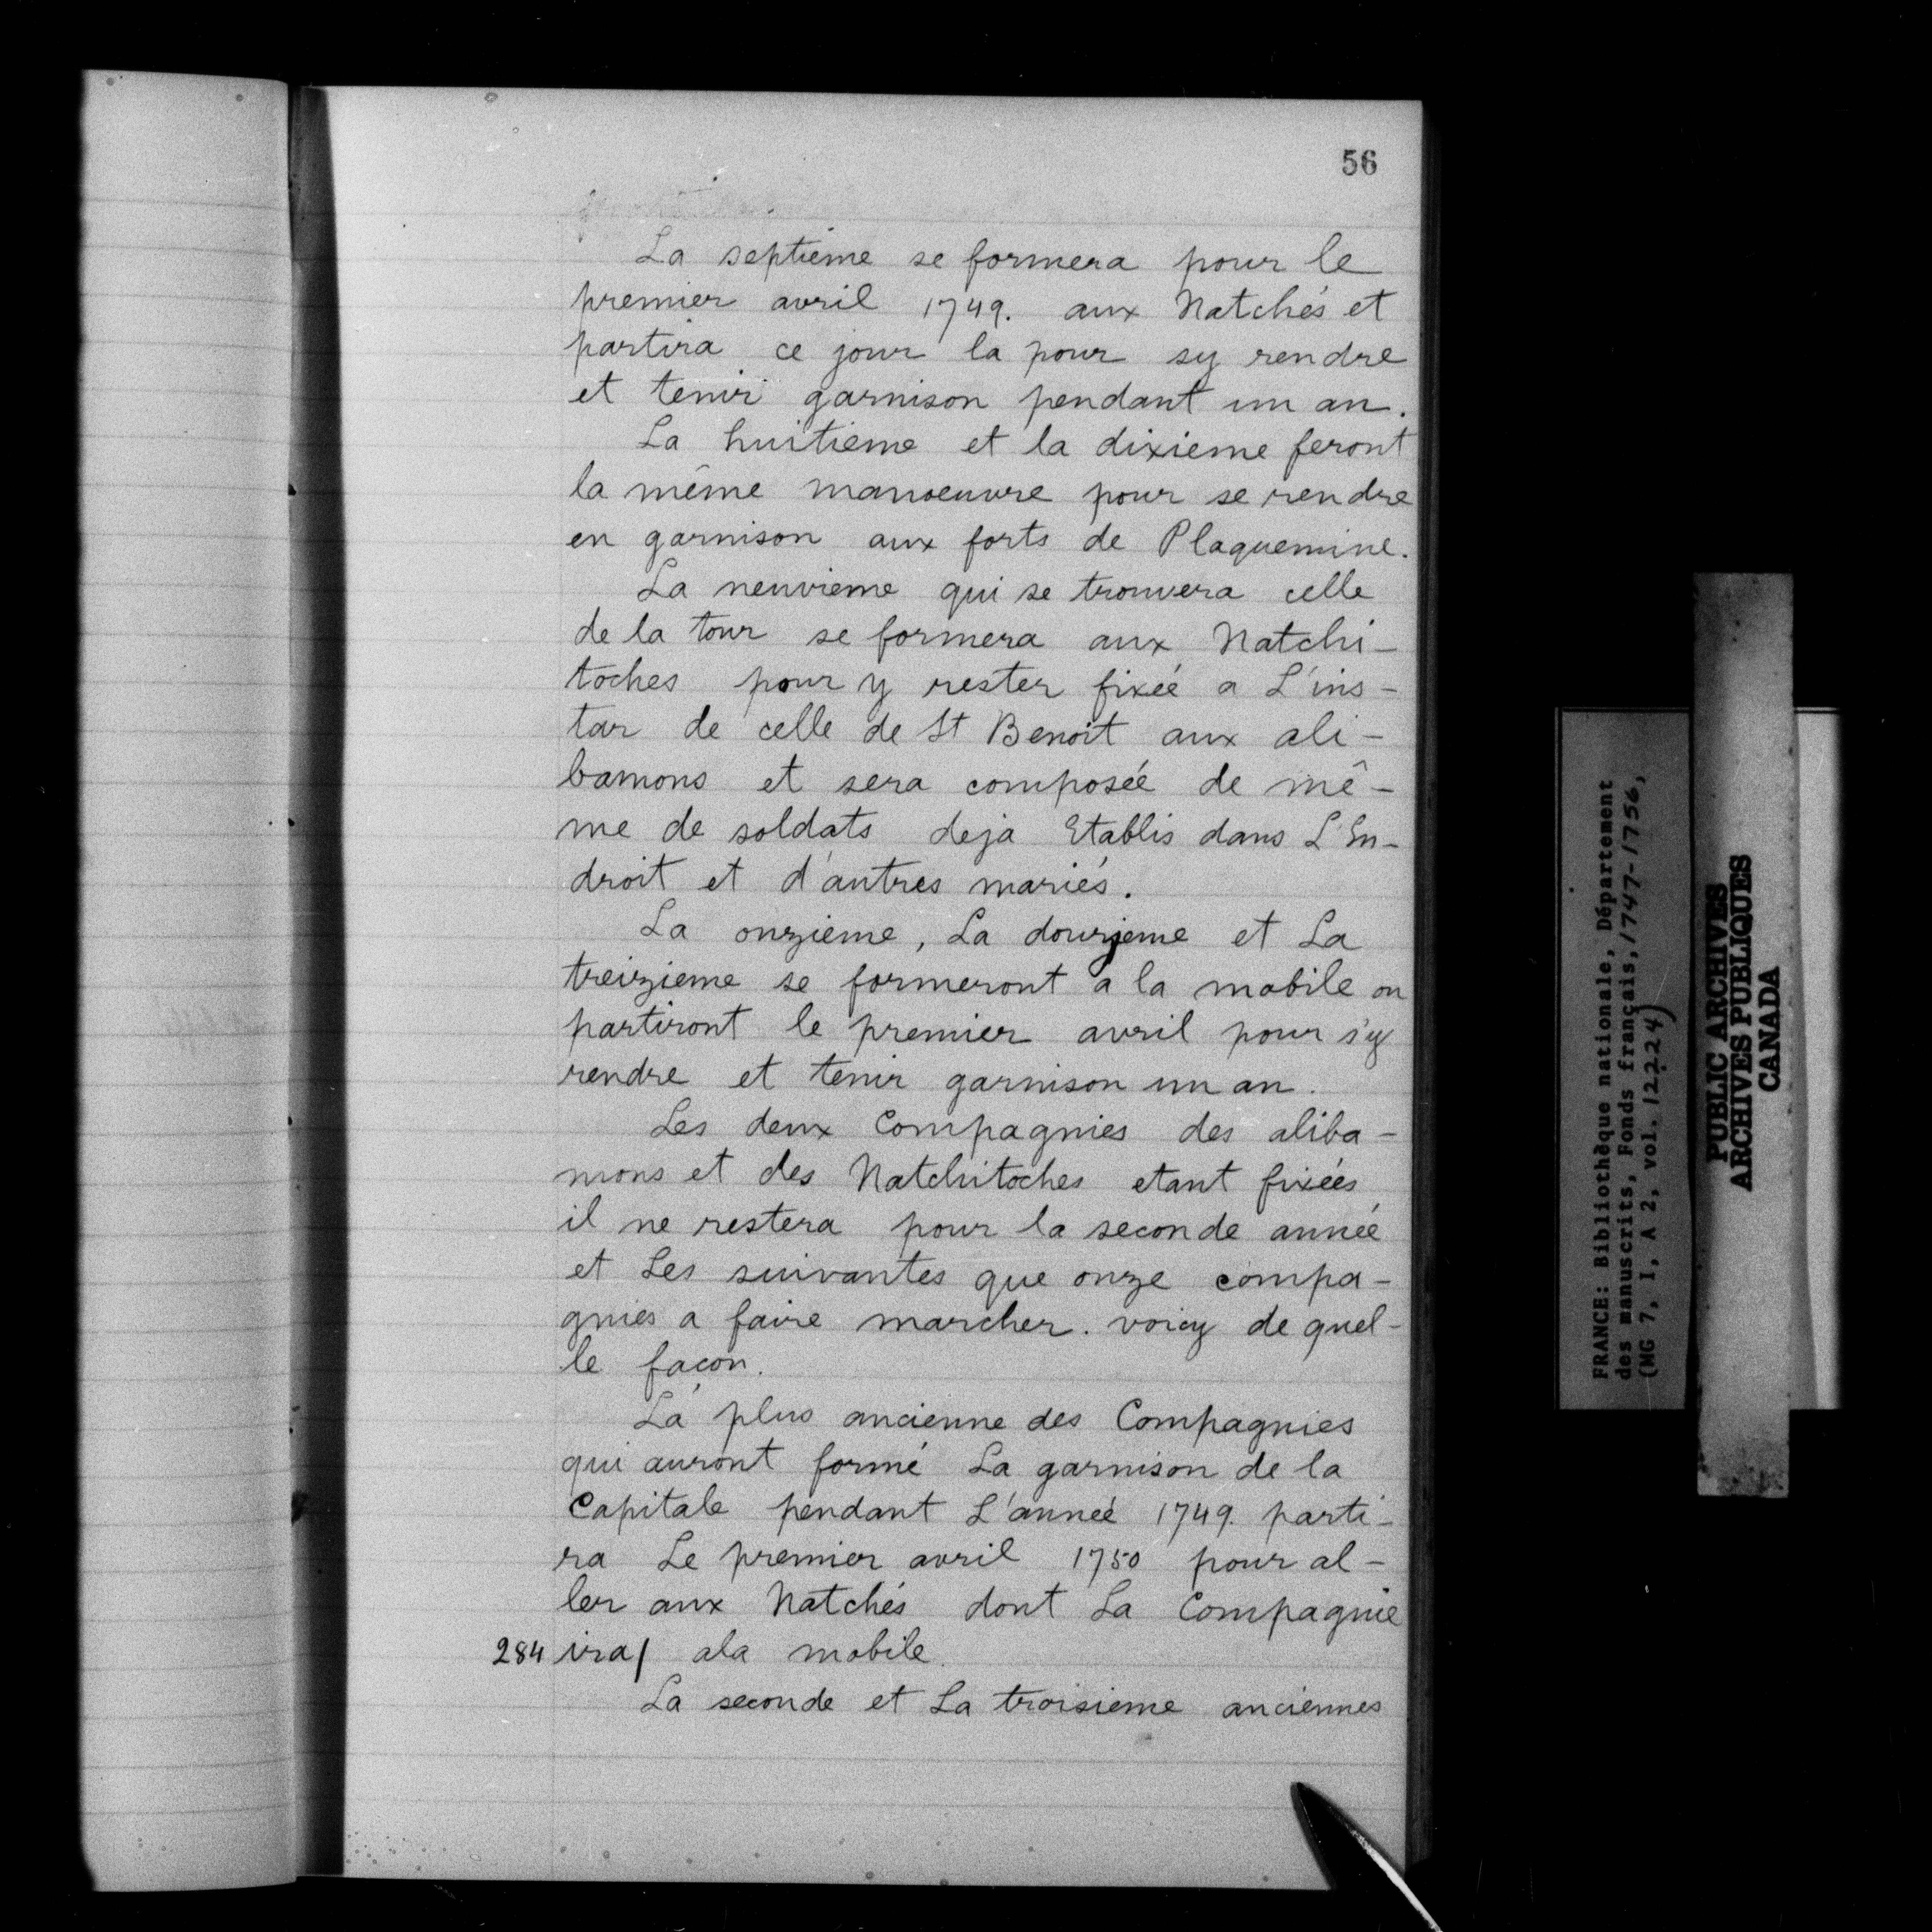 56
La septieme se formera pour le
premier avril 1749. aux Natchés et
partira ce jour la pour sy rendre
et tenir garnison pendant un an.
La huitieme et la dixieme feront
la même manoeuvre pour se rendre
en garnison aux forts de Plaquemine.
La neuvieme qui se trouvera celle
de la tour se formera aux Natchi-
toches pour y rester fixée a L'ins-
tar de celle de St Benoit aux ali-
bamons et sera composée de mê-
me de soldats deja Etablis dans L'En-
droit et d'autres mariés.
La onzieme, La douzieme et La
treizieme se formeront a la mobile ou
partiront le premier avril pour s'y
rendre et tenir garnison un an.
Les deux Compagnies des aliba-
mons et des Natchitoches etant fixées
il ne restera pour la seconde année
et Les suivantes que onze compa-
gnies a faire marcher. voicy de quel-
le façon.
La plus ancienne des Compagnies
qui auront formé La garnison de la
Capitale pendant L'année 1749. parti-
ra Le premier avril 1750 pour al-
ler aux Natchés dont La Compagnie
284 ira/ ala mobile.
La seconde et La troisieme anciennes
FRANCE: Bibliothèque nationale, Département
des manuscrits, Fonds français, 1747-1756,
(MG 7, I, A 2, vol. 12224)
PUBLIC ARCHIVES
ARCHIVES PUBLIQUES
CANADA